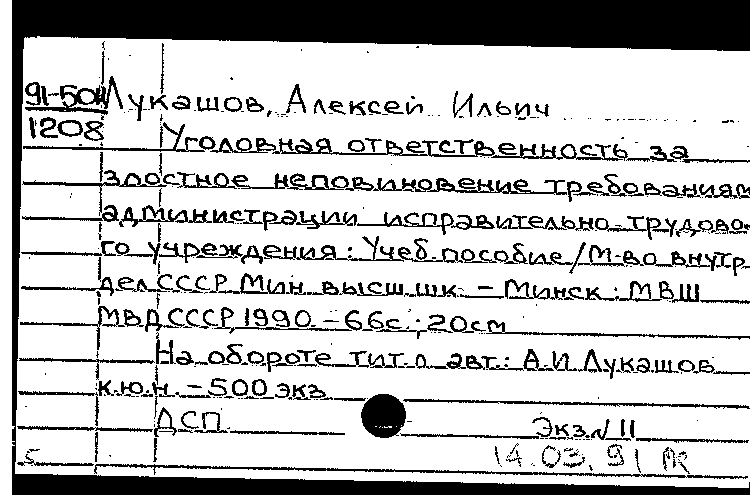 91-50н Лукашов, Алексей Ильич
1208 Уголовная ответственность за
злостное неповиновение требованиям
администрации исправительно-трудово-
го учреждения: Учеб. пособие / М-во внутр.
дел СССР, Мин. высш. шк. - Минск: МВШ
МВД СССР, 1990. - 66с.; 20см
На обороте тит. л. авт.: А.И. Лукашов
к.ю.н. - 500 экз.
ДСП
Экз. N 11
5 14.03.91